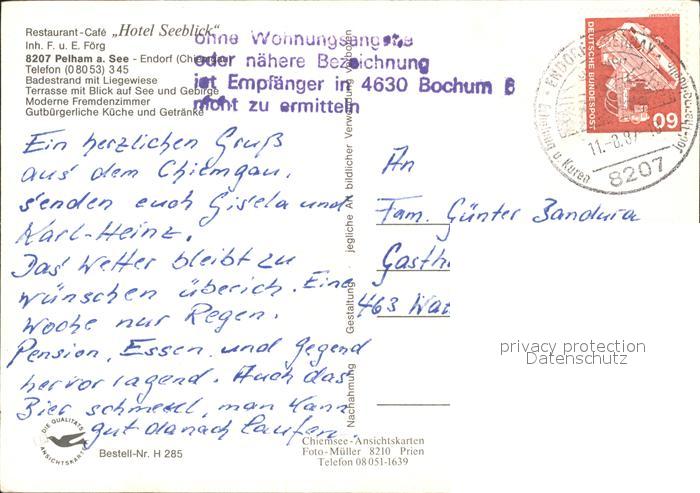 Restaurant-Café „Hotel Seeblick"
Inh. F. u. E. Förg
8207 Pelham a. See - Endorf (Chiemgau)
Telefon (08053) 345
Badestrand mit Liegewiese
Terrasse mit Blick auf See und Gebirge
Moderne Fremdenzimmer
Gutbürgerliche Küche und Getränke
ohne Wohnungsangabe
oder nähere Bezeichnung
ist Empfänger in 4630 Bochum 6
nicht zu ermitteln
DEUTSCHE BUNDESPOST
60
ENDORF
Erholung u. Kuren
11.-8.87
8207
Ein herzlichen Gruß
aus dem Chiemgau.
senden euch Gisela und
Karl-Heinz.
Das Wetter bleibt zu
wünschen überich. Eine
Woche nur Regen.
Pension, Essen und Gegend
hervorragend. Auch das
Bier schmeckt, man kann
gut danach laufen.
An
Fam. Günter Bandura
Gasth
463 Wat
Nachahmung Gestaltung jegliche Art bildlicher Verwertung verboten
privacy protection
Datenschutz
DIE QUALITÄTS
ANSICHTSKARTE
Bestell-Nr. H 285
Chiemsee-Ansichtskarten
Foto-Müller 8210 Prien
Telefon 08051-1639